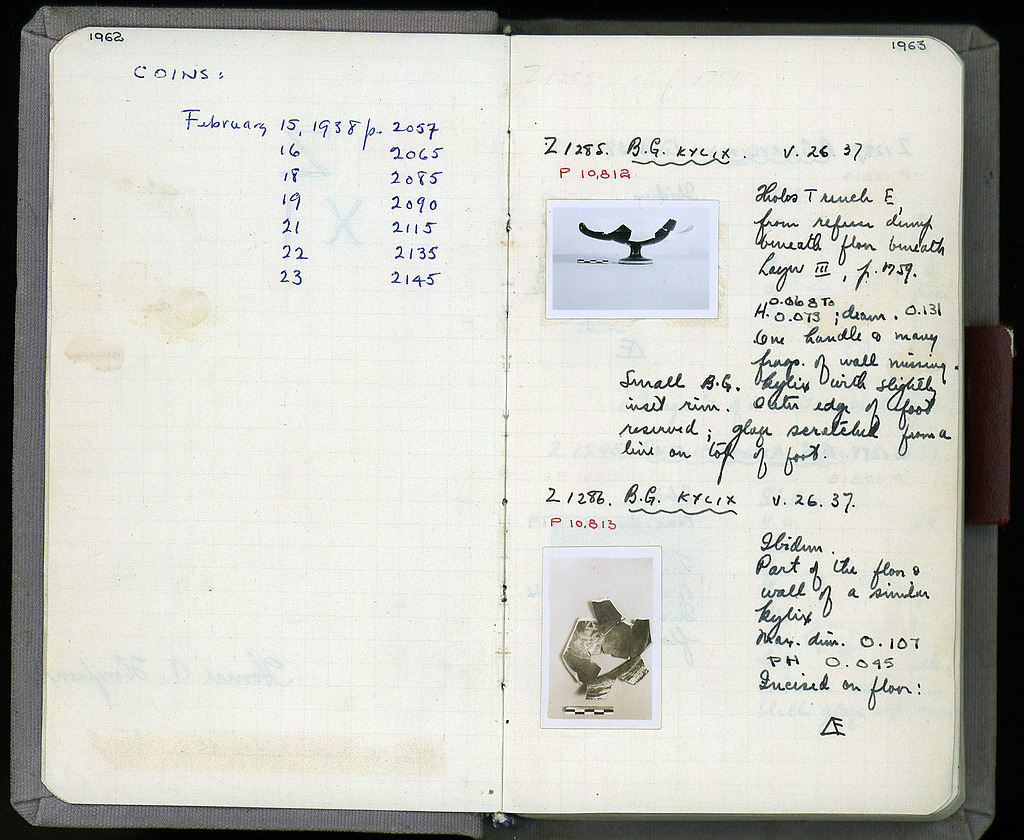 1962
COINS:
February 15, 1938 p. 2057
16 2065
18 2085
19 2090
21 2115
22 2135
23 2145
1963
Z 1285. B.G. KYLIX. V. 26 37
P 10,812
Tholos Trench E,
from refuse dump
beneath floor beneath
Layer III, p. 1759.
H. 0.068 to 0.073; diam. 0.131
One handle & many
frags. of wall missing.
Small B.G. kylix with slightly
inset rim. Outer edge of foot
reserved; glaze scratched from a
line on top of foot.
Z 1286. B.G. KYLIX V. 26. 37.
P 10,813
Ibidem.
Part of the floor &
wall of a similar
kylix
Max. dim. 0.107
PH 0.045
Incised on floor: